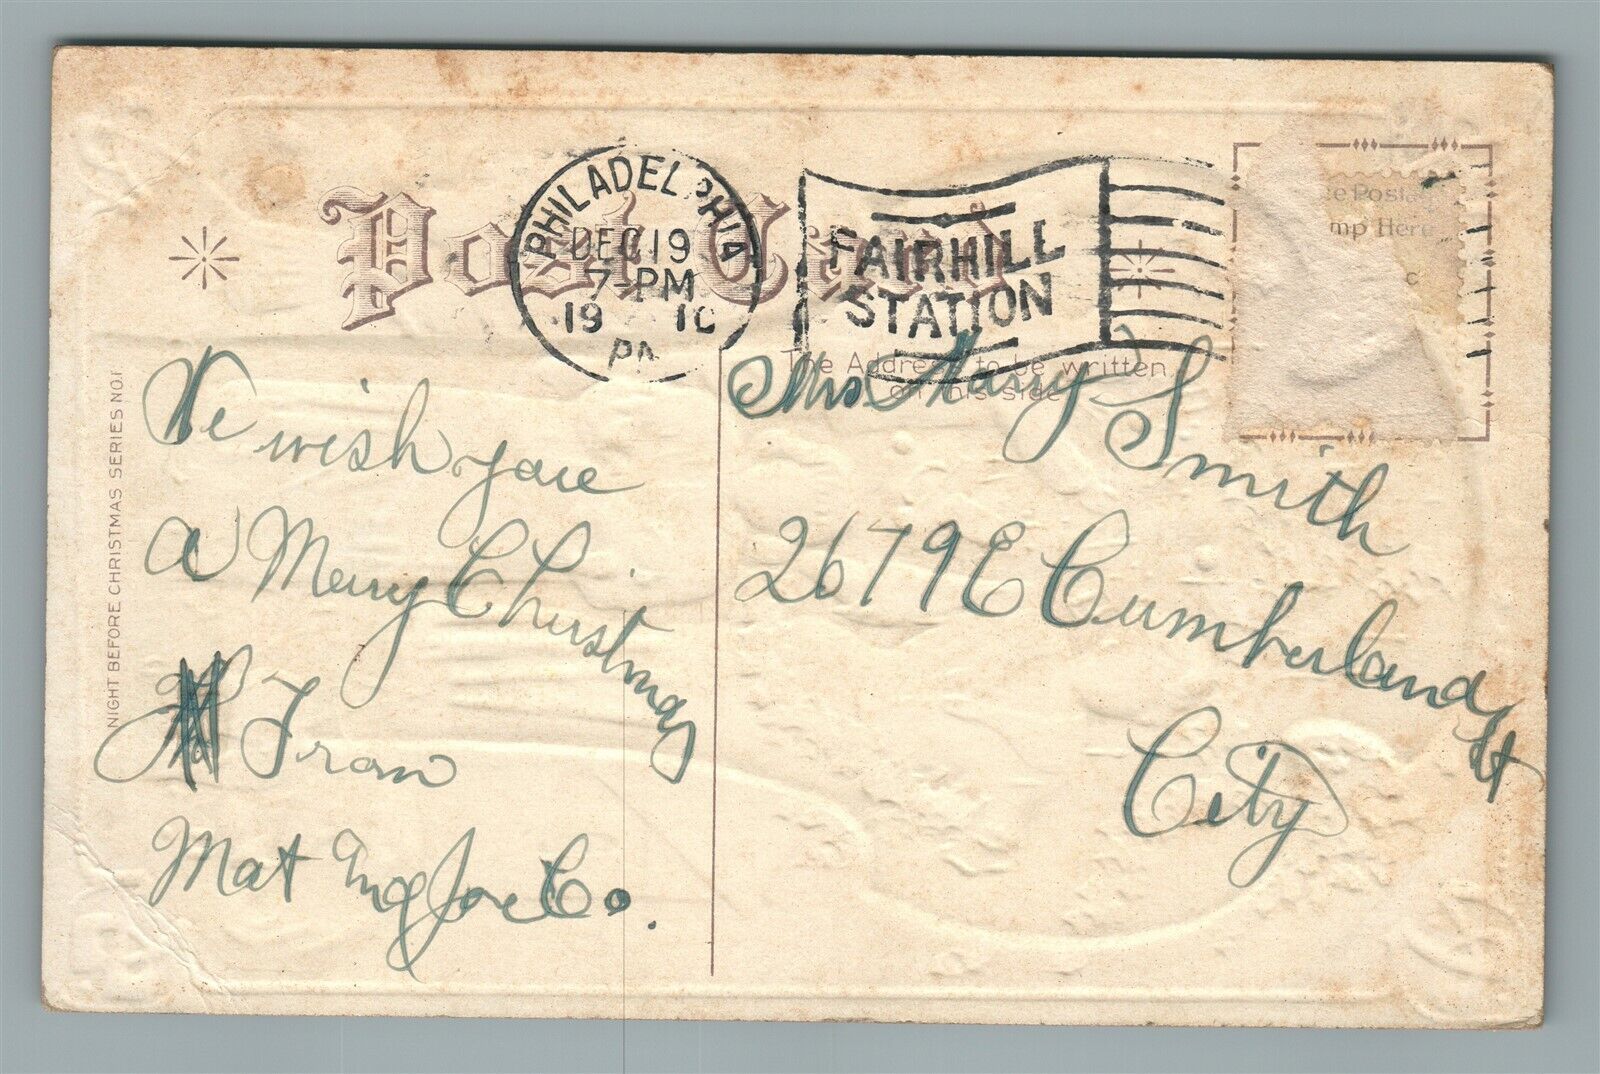 Post Card
PHILADELPHIA
DEC 19
7-PM
1910
PA
FAIRHILL
STATION
The Address to be written
on this side
ce Postag
mp Here
NIGHT BEFORE CHRISTMAS SERIES NO.1
We wish you
a Merry Christmas
From
Mat Joe Co.
Mrs. Harry Smith
2679 E Cumberland St
City